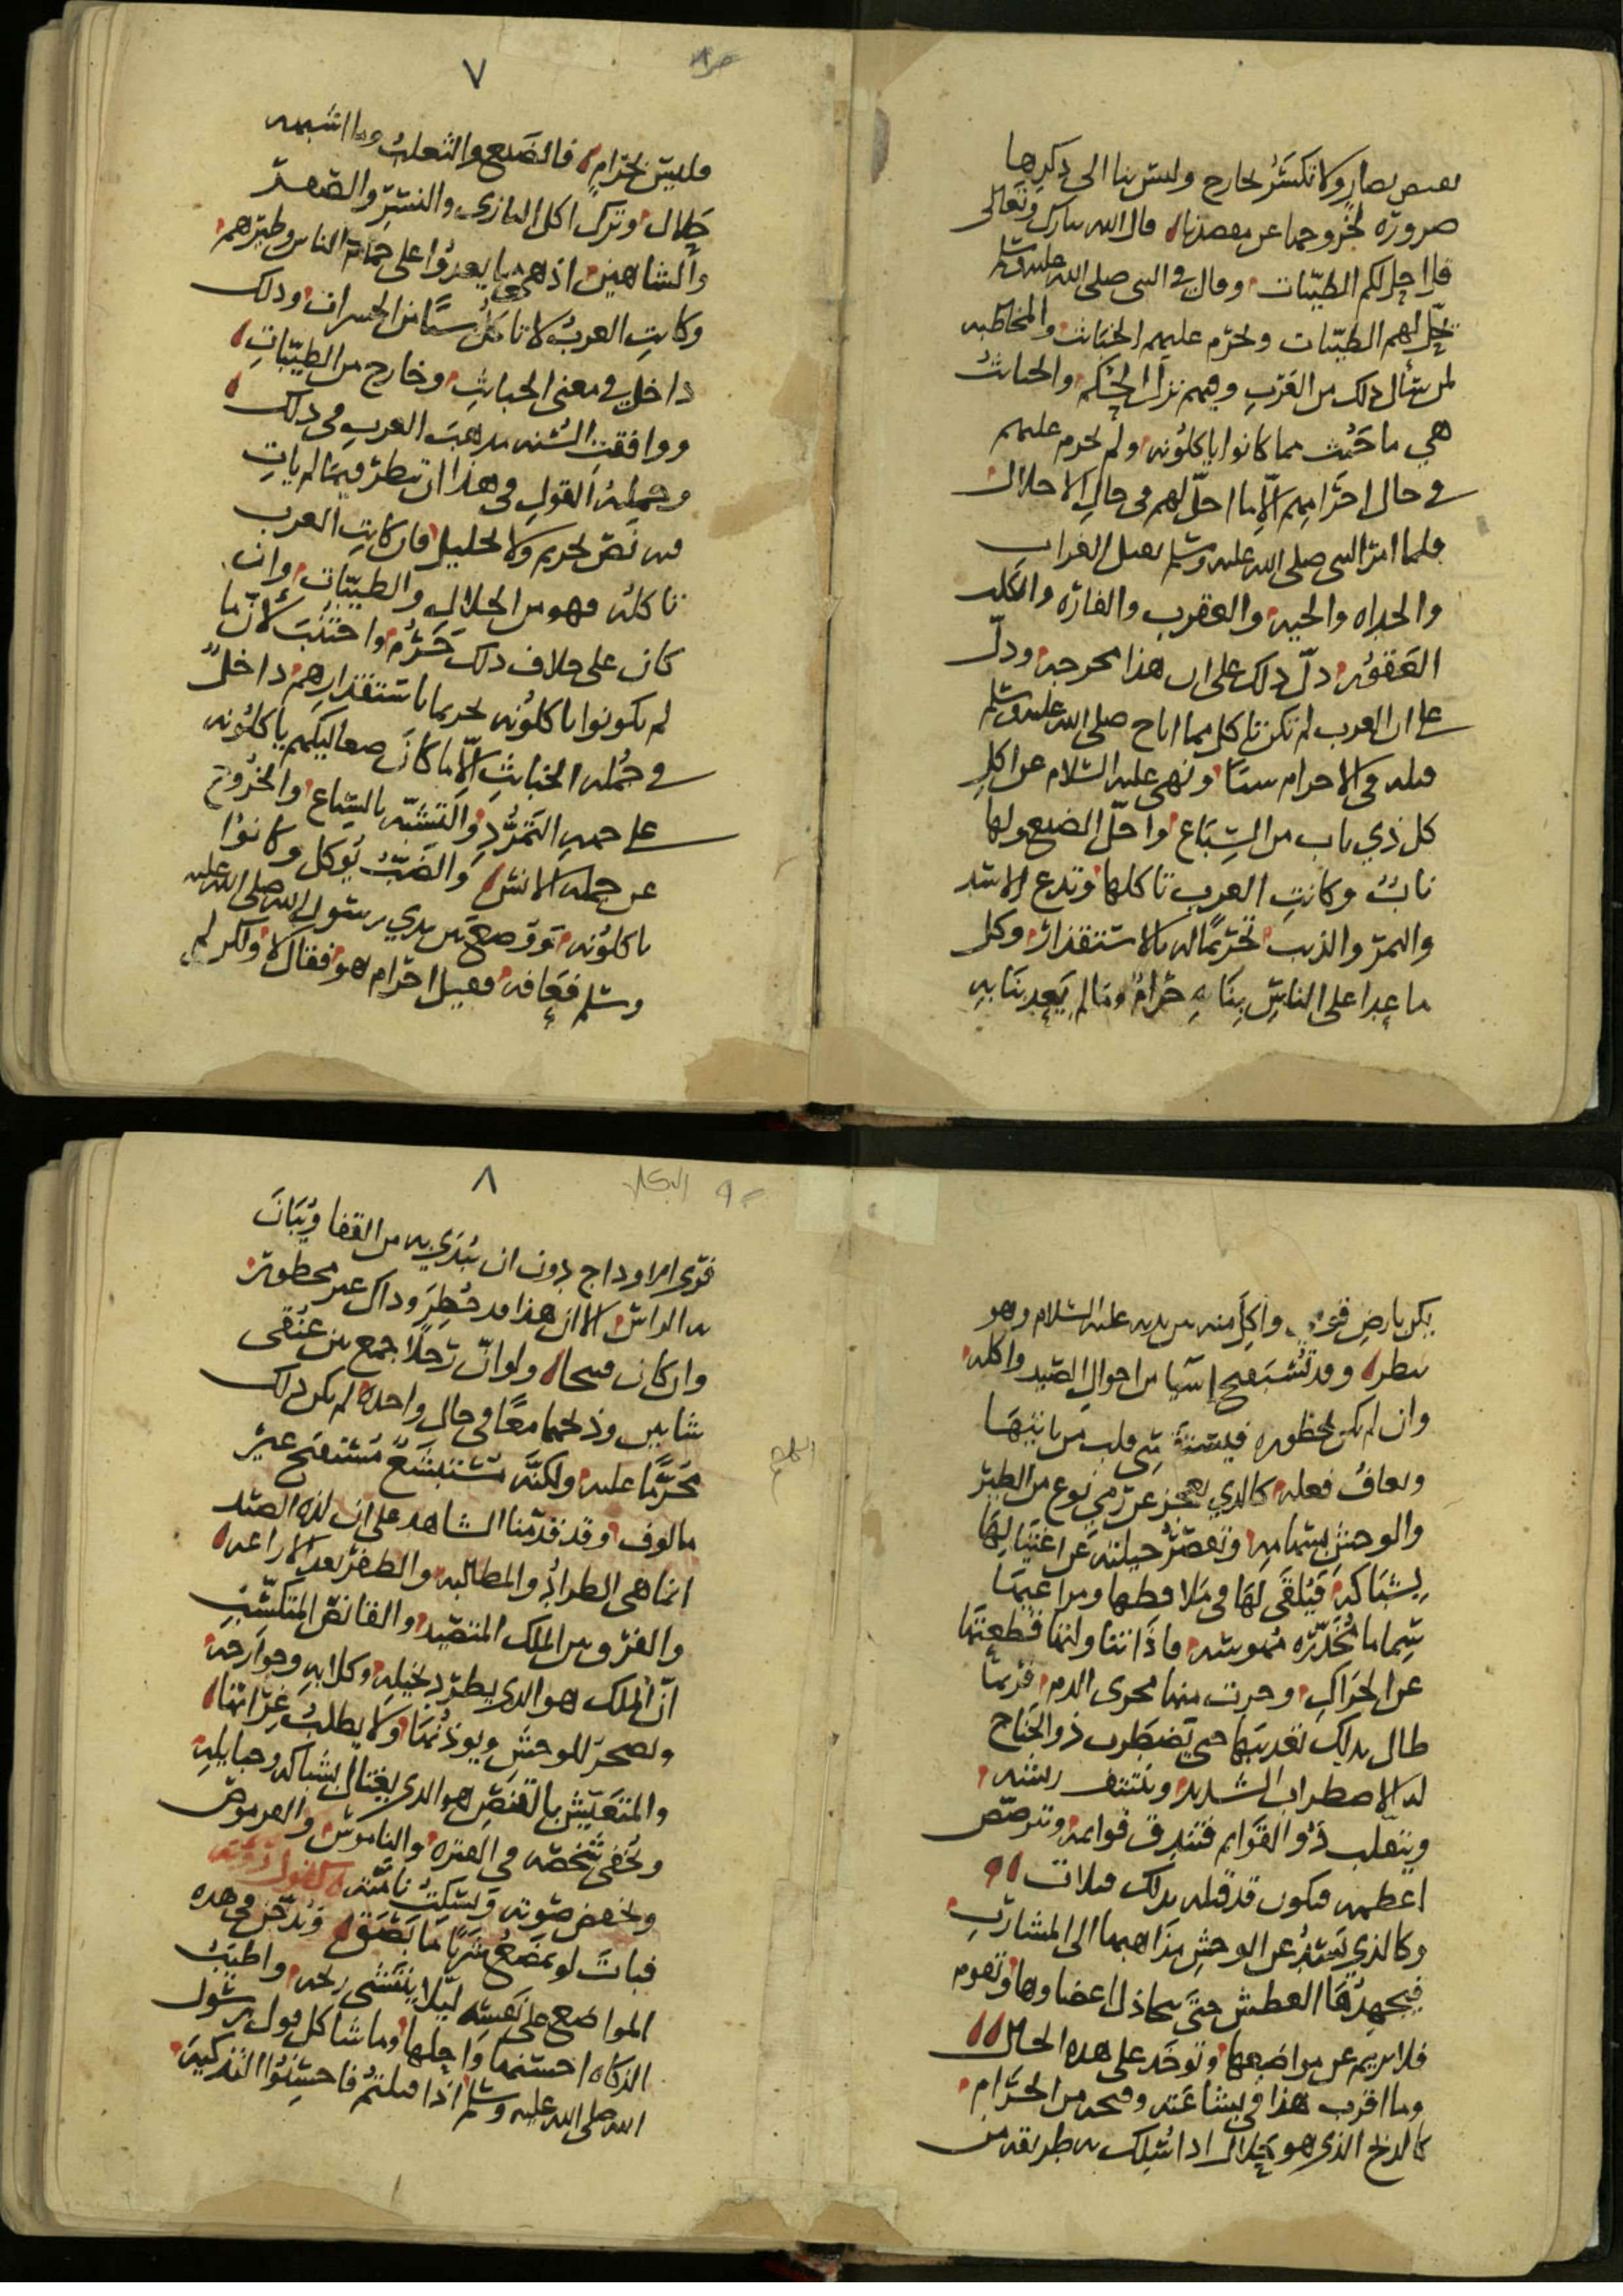 بعيص بصار ولا تكسر لجارح وليس بنا الى ذكرها
ضرورة لخروجها عن مقصدنا قال الله تبارك وتعالى
قل احل لكم الطيبات وقال في النبي صلى الله عليه وسلم
يحل لهم الطيبات ويحرم عليهم الخبائث والمخاطبه
لمن سأل ذلك من العرب وفيهم نزل الحكم والخبائث
هي ما خبث مما كانوا ياكلونه ولم يحرم عليهم
في حال احرامهم الا ما احل لهم في حال الاحلال
فلما امر النبي صلى الله عليه وسلم بقتل الغراب
والحداه والحيه والعقرب والفارة والكلب
العقور دل ذلك على ان هذا مخرجه ودل
على ان العرب لم تكن تاكل مما اباح صلى الله عليه وسلم
قتله في الاحرام شيئا ونهى عليه السلام عن اكل
كل ذي ناب من السباع واحل الضبع ولها
ناب وكانت العرب تاكلها وتدع الاسد
والنمر والذيب تحريما له بالاستقذار وكل
ما عدا على الناس بنابه حرام وما لم يعد بنابه
٧
فليس بحرام فالضبع والثعلب وما اشبهه
حلال وترك اكل البازي والنسر والصقر
والشاهين اذ هي مما يعدوا على حمام الناس وطيرهم
وكانت العرب لا تاكل شيئا من الحشرات وذلك
داخل في معنى الخبائث وخارج من الطيبات
ووافقت السنه مذهب العرب في ذلك
وجملة القول في هذا ان تنظر فيما لم يات
فيه نص تحريم ولا تحليل فان كانت العرب
تاكله فهو من الحلال والطيبات وان
كان على خلاف ذلك حرم واجتنب لان ما
لم يكونوا ياكلونه تحريما باستقذارهم داخل
في جمله الخبائث الا ما كان صعاليكهم ياكلونه
على جهه التمرد والتشبه بالسباع والخروج
عن جمله الانس والضب يوكل وكانوا
ياكلونه ووضع بين يدي رسول الله صلى الله عليه
وسلم فعافه فقيل احرام هو فقال لا ولكن لم
يكن بارض قومي واكل منه بين يديه عليه السلام وهو
ينظر وقد تستقبح اشيا من احوال الصيد واكله
وان لم تكن محظوره
ويعاف فعله كالذي يعجز عن رمي نوع من الطير
والوحش بسهامه وتقصر حيلته عن اغتيالها
بشباكه فيلقى لها في ملاقطها ومراعيها
سما ما تخدره مموته فاذا تناولتها قطعتها
عن الحراك وجرت منها مجرى الدم فربما
طال بذلك تعذيبها حتى يضطرب ذو الجناح
له الاضطراب الشديد وينتتف ريشه
ويتقلب ذو القوايم فتندق قوايمه وتترضض
اعظمه فيكون قد قتله بذلك قتلات
وكالذي يسد عن الوحش مذاهبها الى المشارب
فيجهدها العطش حتى تتخاذل اعضاوها وتقوم
فلا تريم عن مواضعها وتوخذ على هذه الحال
وما اقرب هذا في بشاعته وقبحه من الحرام
كالذبح الذي هو حلال اذا سلك به طريقه من
٨
فري الاوداج بدون ان يبدي به من القفا ويبان
به الراس الا ان هذا قد حظر وذاك غير محظور
وان كان قبيحا ولو ان رجلا جمع بين عنقي
شاتين وذبحهما معا في حال واحده لم يكن ذلك
محرما عليه ولكنه مستبشع مستقبح غير
مالوف وقد قدمنا الشاهد على ان لذه الصيد
انما هي الطراد والمطالبه والظفر بعد الاراغه
والفرق بين الملك المتصيد والقانص المتكسب
ان الملك هو الذي يطرد بخيله وكلابه وجوارحه
ويصحر للوحش ويوذنها ولا يطلب غراتها
والمتعيش بالقنص هو الذي يغتال بشباكه وحبايله
ويخفي شخصه في القتره والناموس والقرموص
ويخفض صوته ويسكت نامته كقول رؤبة
فبات لو يمضغ شريا ما بصق ويدخن في هذه
المواضع على نفسه ليلا يتفشى ريحه واطيب
الذكاه احسنها واجلها وما شاكل قول رسول
الله صلى الله عليه وسلم اذا قتلتم فاحسنوا التذكية